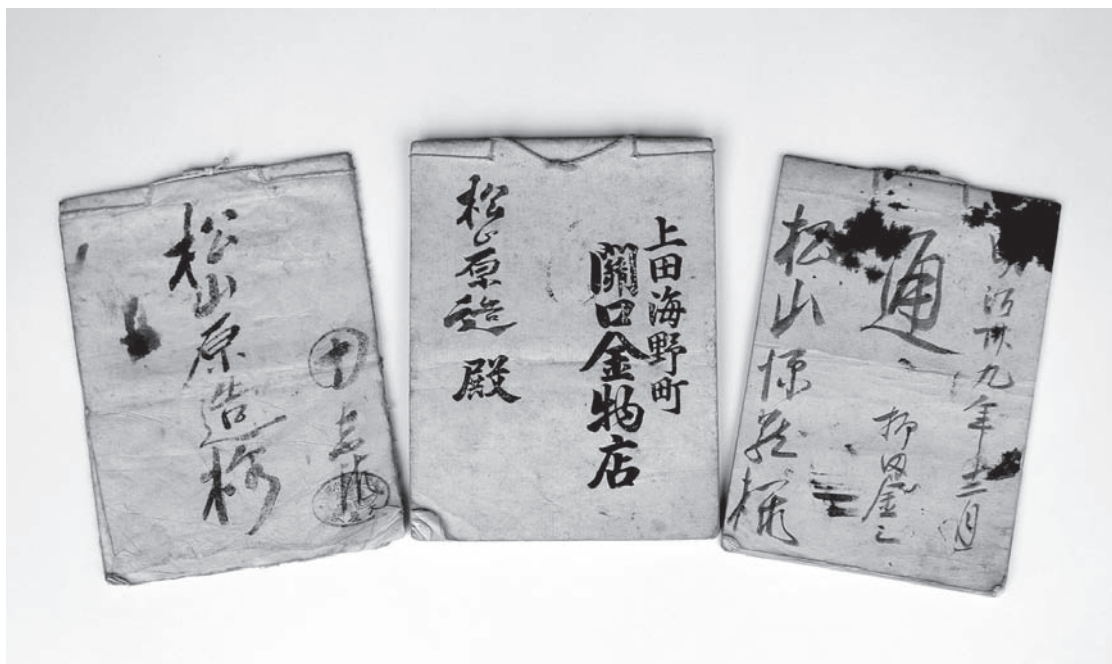 十
松山原造様
上田海野町
關口金物店
松山原造殿
治卅九年十二月
通
松山源蔵様